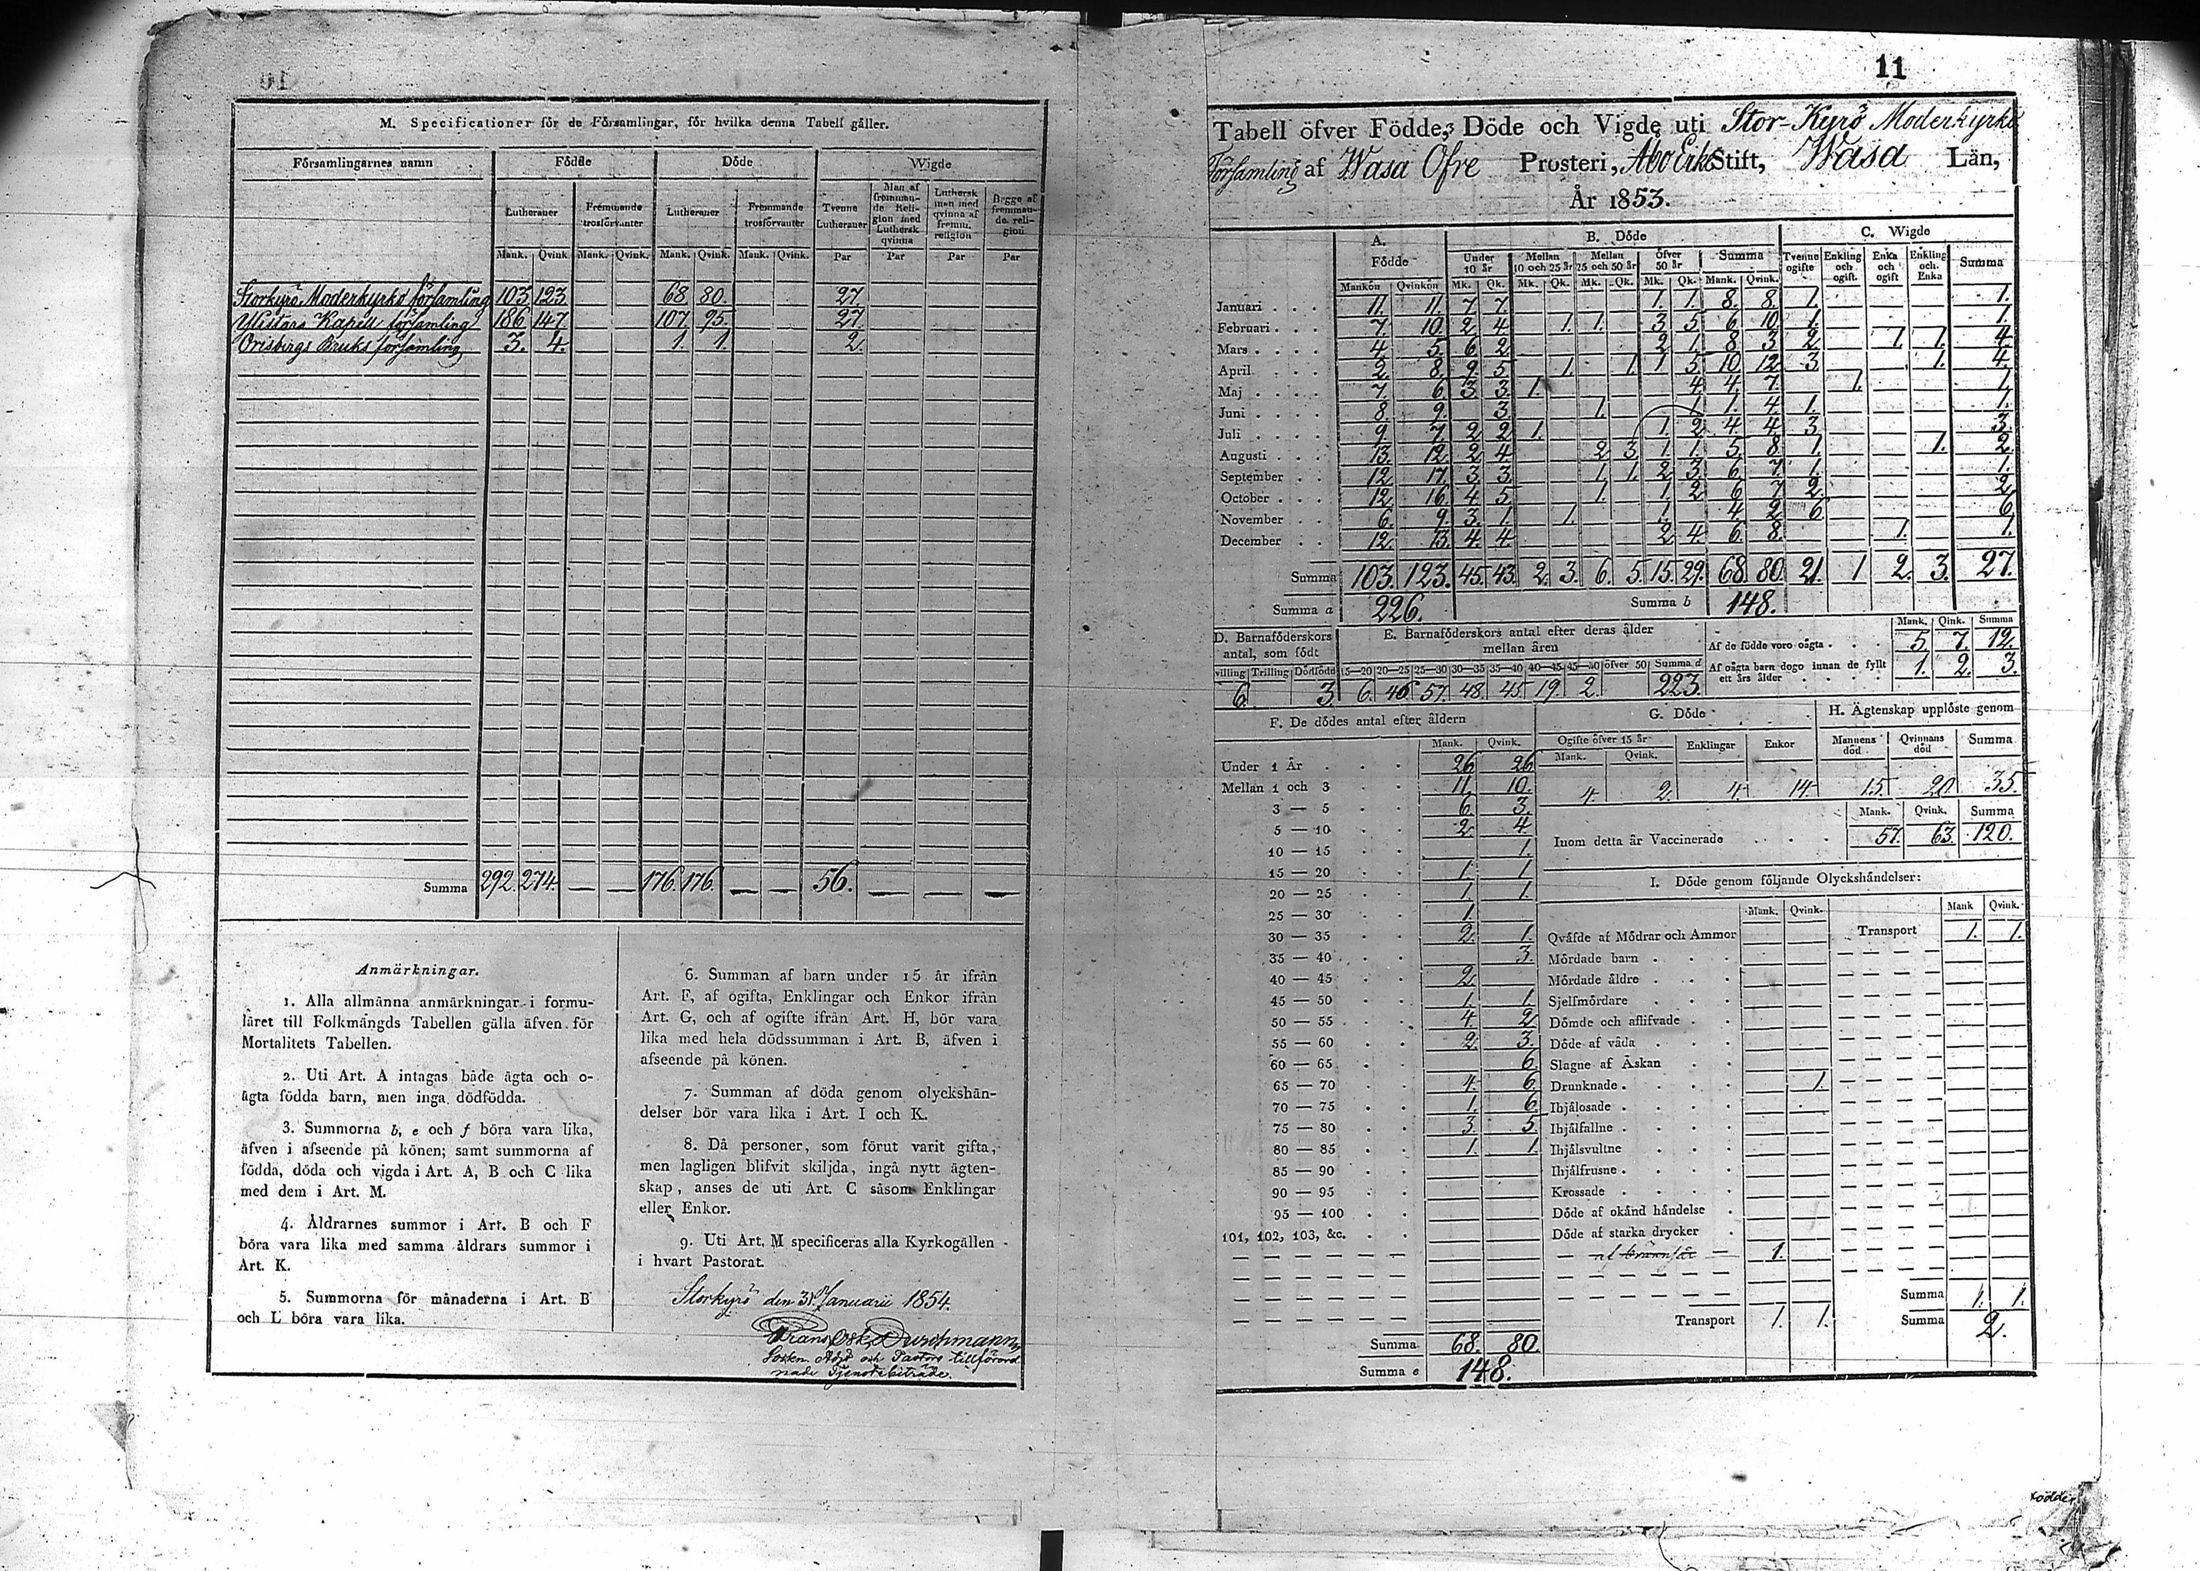 M. Specificationer för de Församlingar, för hvilka denna Tabell gäller.
Församlingarnes namn Födde Döde Wigde
Lutheraner Fremmande trosförvanter Lutheraner Fremmande trosförvanter Tvenne Lutheraner Man af fremmande Religion med Luthersk qvinna Luthersk man med qvinna af fremm. religion Begge af fremmande religion
Mank. Qvink. Mank. Qvink. Mank. Qvink. Mank. Qvink. Par Par Par Par
Storkyrö Moderkyrko församling 103 123 68 80. 27.
Ylistaro Kapell församling 186 147 107. 95. 27.
Orisbergs Bruks församling 3. 4. 1. 1 2.
Summa 292. 274. — — 176. 176. — — 56. — — —
Anmärkningar.
1. Alla allmänna anmärkningar i formu-
läret till Folkmängds Tabellen gälla äfven för
Mortalitets Tabellen.
2. Uti Art. A intagas både ägta och o-
ägta födda barn, men inga dödfödda.
3. Summorna b, e och f böra vara lika,
äfven i afseende på könen; samt summorna af
födda, döda och vigda i Art. A, B och C lika
med dem i Art. M.
4. Åldrarnes summor i Art. B och F
böra vara lika med samma åldrars summor i
Art. K.
5. Summorna för månaderna i Art. B
och L böra vara lika.
6. Summan af barn under 15 år ifrån
Art. F, af ogifta, Enklingar och Enkor ifrån
Art. G, och af ogifte ifrån Art. H, bör vara
lika med hela dödssumman i Art. B, äfven i
afseende på könen.
7. Summan af döda genom olyckshän-
delser bör vara lika i Art. I och K.
8. Då personer, som förut varit gifta,
men lagligen blifvit skiljda, ingå nytt ägten-
skap, anses de uti Art. C såsom Enklingar
eller Enkor.
9. Uti Art. M specificeras alla Kyrkogällen
i hvart Pastorat.
Storkyrö den 31 Januarii 1854.
Frans Osk. Durchmann
Sockn. Adj. och Pastors tillförord
nade Tjenstebiträde.
11
Tabell öfver Födde, Döde och Vigde uti Stor-Kyrö Moderkyrko
Församling af Wasa Öfre Prosteri, Åbo Erke Stift, Wasa Län,
År 1853.
A. Födde B. Döde C. Wigde
Under 10 år Mellan 10 och 25 år Mellan 25 och 50 år Öfver 50 år Summa Tvenne ogifte Enkling och ogift. Enka och ogift Enkling och Enka Summa
Mankön Qvinkön Mk. Qk. Mk. Qk. Mk. Qk. Mk. Qk. Mank. Qvink.
Januari . . . 11. 11. 7. 7. 1. 1. 8. 8. 1. 1.
Februari . . . 7. 10. 2 4. 1. 1. 3 5 6 10. 1. 1.
Mars . . . . 4 5. 6 2 2 1. 8 3 2. 1. 1. 4.
April . . . 2. 8. 9. 5. 1. 1. 1 3 10 12 3. 1. 4.
Maj . . . . 7. 6. 3 3. 1. 4 4 7. 1. 1.
Juni . . . . 8. 9. 3. 1. 1 1. 4. 1. 1.
Juli . . . . 9. 7. 2 2 1. 1. 2. 4 4 3. 3.
Augusti . . . 13. 12. 2 4. 2 3 1. 1. 5. 8. 1. 1. 2.
September . . 12. 17. 3 3. 1. 1. 2 3. 6 7. 1. 1.
October . . . 12. 16. 4 5. 1. 1. 2 6 7 2. 2.
November . . 6. 9. 3. 1. 1. 1. 4 2 6. 6.
December . . 12. 13. 4. 4. 2 4. 6. 8. 1. 1.
Summa 103. 123. 45. 43. 2. 3. 6. 5. 15. 29. 68. 80. 21. 1 2. 3. 27.
Summa a 226. Summa b 148.
D. Barnaföderskors antal, som födt
E. Barnaföderskors antal efter deras ålder mellan åren
villing Trilling Dödfödd 15—20 20—25 25—30 30—35 35—40 40—45 45—50 öfver 50 Summa d
6. 3. 6. 46 57. 48. 45 19. 2. 223.
Mank. Qink. Summa
Af de födde voro oägta . . . 5. 7. 12.
Af oägta barn dogo innan de fyllt ett års ålder . . . . . 1. 2. 3.
F. De dödes antal efter åldern
Mank. Qvink.
Under 1 År 26 26
Mellan 1 och 3 11. 10.
3 — 5 6. 3.
5 — 10 2. 4
10 — 15 1.
15 — 20 1. 1
20 — 25 1. 1.
25 — 30 1.
30 — 35 2. 1.
35 — 40 3.
40 — 45 2.
45 — 50 1. 1.
50 — 55 4. 2
55 — 60 2. 3.
60 — 65 6.
65 — 70 4. 6.
70 — 75 1. 6.
75 — 80 3. 5
80 — 85 1. 1.
85 — 90
90 — 95
95 — 100
101, 102, 103, &c.
Summa 68. 80.
Summa e 148.
G. Döde
Ogifte öfver 15 år Enklingar Enkor
Mank. Qvink.
4. 2. 4. 14.
H. Ägtenskap upplöste genom
Mannens död Qvinnans död Summa
15. 20 35.
Mank. Qvink. Summa
Inom detta år Vaccinerade . . . . 57. 63. 120.
I. Döde genom följande Olyckshändelser:
Mank. Qvink. Mank Qvink.
Qväfde af Mödrar och Ammor Transport 1. 1.
Mördade barn . . .
Mördade äldre . . .
Sjelfmördare
Dömde och aflifvade . .
Döde af våda
Slagne af Åskan
Drunknade . . . . 1.
Ihjälosade . . . .
Ihjälfallne . . . .
Ihjälsvultne
Ihjälfrusne . . . .
Krossade . . . .
Döde af okänd händelse .
Döde af starka drycker .
— af brännsår — 1.
Summa 1. 1.
Transport 1. 1. Summa 2.